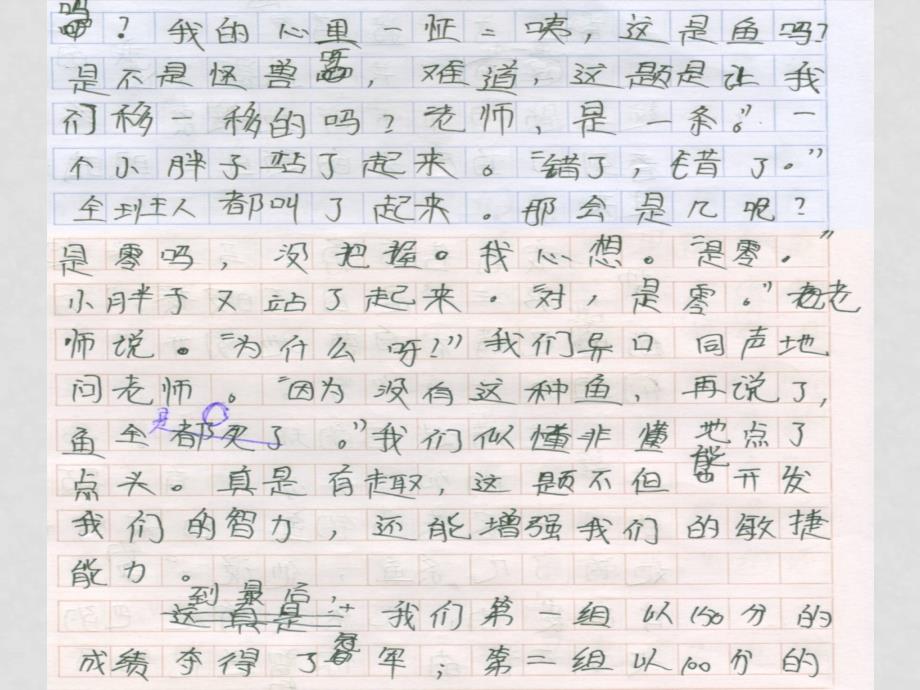 吗？我的心里一怔：咦，这是鱼吗？
是不是怪兽，难道，这题是让我
们移一移的吗？老师，是一条。一
个小胖子站了起来。“错了，错了。”
全班人都叫了起来。那会是几呢？
是零吗，没把握。我心想。“是零。”
小胖子又站了起来。“对，是零。”老
师说。“为什么呀！”我们异口同声地
问老师。“因为没有这种鱼，再说了，
鱼全都死了。”我们似懂非懂地点了
点头。真是有趣，这题不但能开发
我们的智力，还能增强我们的敏捷
能力。
到最后，我们第一组以150分的
成绩夺得了冠军；第二组以100分的